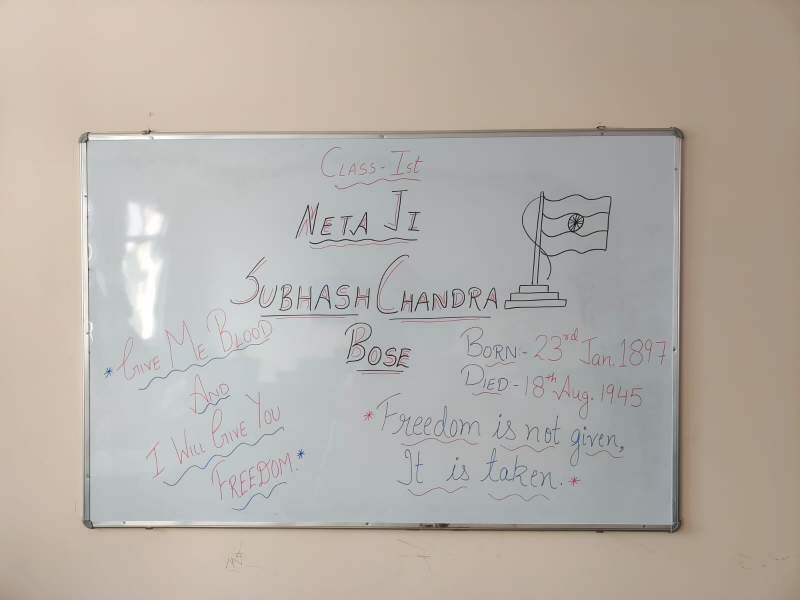 Class-Ist
Neta Ji
Subhash Chandra
Bose
Born:- 23rd Jan. 1897
Died:- 18th Aug. 1945
* Give Me Blood
And
I Will Give You
Freedom. *
* Freedom is not given,
It is taken. *